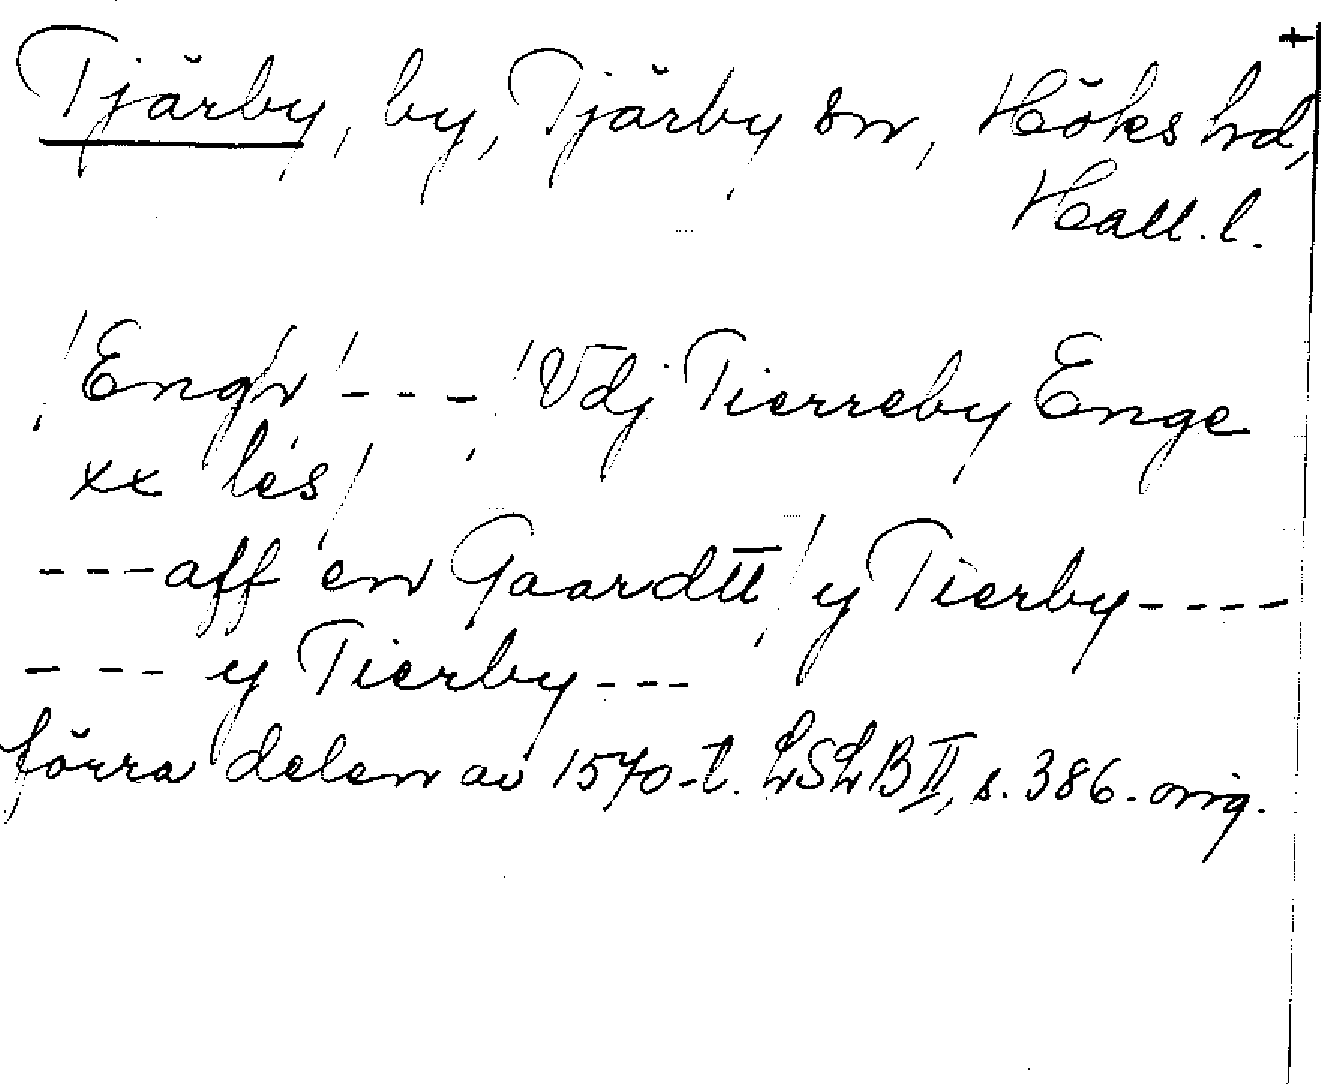 Tjärby, by, Tjärby sn, Höks hd,
Hall. l.
/Engn/ --- /Vdj Tierreby Enge
xx les/
---aff en Gaardtt/y Tierby----
--- y Tierby---
förra delen av 1570-t. LSLB II, s. 386. orig.